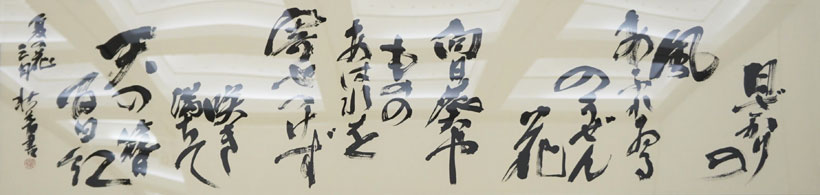 日ざかり
の
風
あふれゐる
のうぜん
花
向日葵や
ものの
あはれを
寄せつけず
咲き
満ちて
天の簪
百日紅
夏花
三句